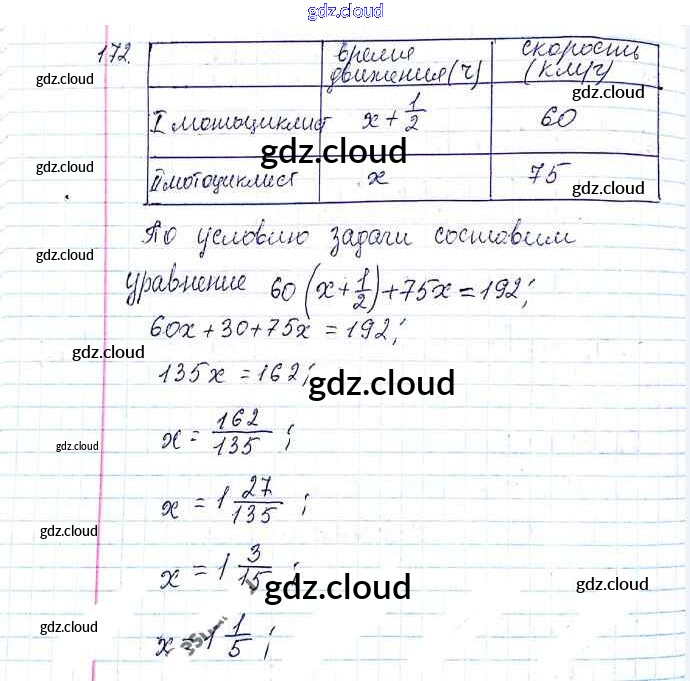 gdz.cloud
gdz.cloud
172.
время движения (ч)
скорость (км/ч)
gdz.cloud
gdz.cloud
I мотоциклист x + 1/2 60
gdz.cloud
gdz.cloud
II мотоциклист x 75
gdz.cloud
По условию задачи составим
gdz.cloud
gdz.cloud
уравнение 60(x + 1/2) + 75x = 192;
60x + 30 + 75x = 192;
gdz.cloud
135x = 162;
gdz.cloud
x = 162/135 ;
gdz.cloud
gdz.cloud
x = 1 27/135 ;
gdz.cloud
gdz.cloud
x = 1 3/15 ;
gdz.cloud
gdz.cloud
gdz.cloud
x = 1 1/5 ;
gdz.cloud